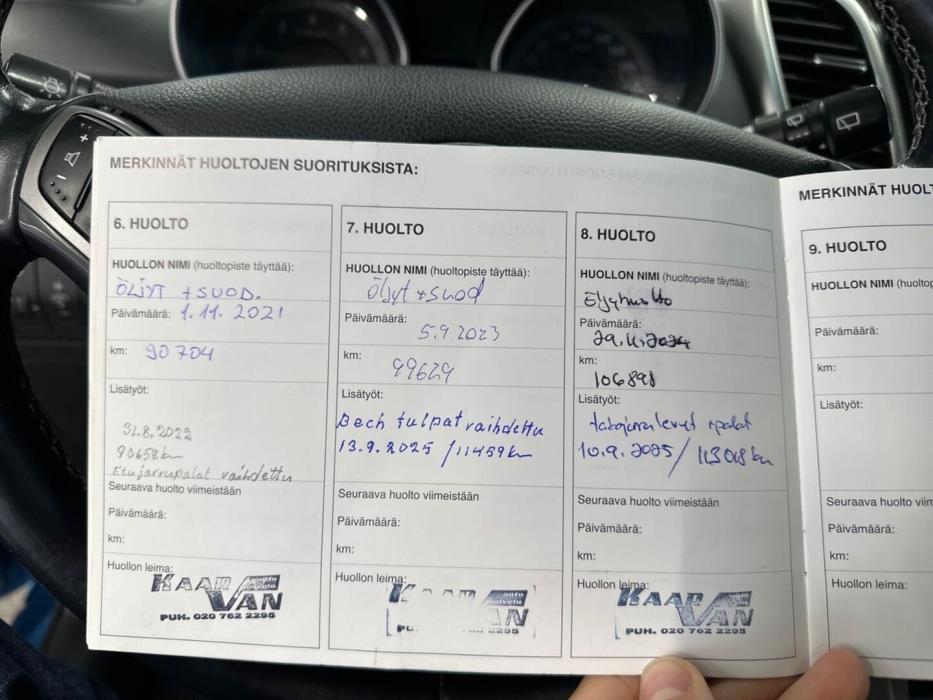 MERKINNÄT HUOLTOJEN SUORITUKSISTA:
6. HUOLTO
HUOLLON NIMI (huoltopiste täyttää):
ÖLJYT + SUOD.
Päivämäärä: 1.11. 2021
km: 90 704
Lisätyöt:
31.8.2022
90658km
Etujarrupalat vaihdettu
Seuraava huolto viimeistään
Päivämäärä:
km:
Huollon leima:
KAAR VAN
PUH. 020 762 2295
7. HUOLTO
HUOLLON NIMI (huoltopiste täyttää):
Öljyt + suod
Päivämäärä:
5.9.2023
km:
99629
Lisätyöt:
Bech tulpat vaihdettu
13.9.2025 / 11459km
Seuraava huolto viimeistään
Päivämäärä:
km:
Huollon leima:
8. HUOLTO
HUOLLON NIMI (huoltopiste täyttää):
Öljyhuolto
Päivämäärä:
29.11.2024
km:
106898
Lisätyöt:
takajarrulevyt + palat
10.9.2025 / 113018 km
Seuraava huolto viimeistään
Päivämäärä:
km:
Huollon leima:
KAAR VAN
PUH. 020 762 2295
MERKINNÄT HUOLT
9. HUOLTO
HUOLLON NIMI (huoltop
Päivämäärä:
km:
Lisätyöt:
Seuraava huolto viim
Päivämäärä:
km:
Huollon leima: